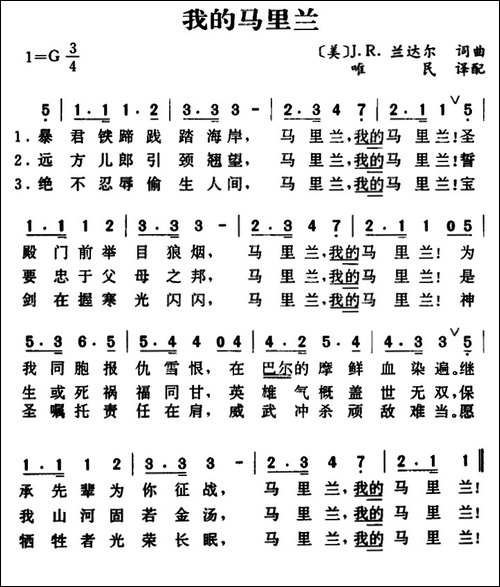 我的马里兰
1=G 3/4
〔美〕J.R. 兰达尔 词曲
唯 民 译配
5 | 1.1 1.2 | 3.3 3 - | 2.3 4 7 | 2.1 1 ∨ 5 |
1.暴君铁蹄践踏海岸，马里兰，我的马里兰！圣
2.远方儿郎引颈翘望，马里兰，我的马里兰！誓
3.绝不忍辱偷生人间，马里兰，我的马里兰！宝
1.1 1 2 | 3.3 3 - | 2.3 4 7 | 2.1 1 05 |
殿门前举目狼烟，马里兰，我的马里兰！为
要忠于父母之邦，马里兰，我的马里兰！是
剑在握寒光闪闪，马里兰，我的马里兰！神
5.3 6.5 | 5.4 4 04 | 4.2 5.4 | 4.3 3 ∨ 5 |
我同胞报仇雪恨，在巴尔的摩鲜血染遍。继
生或死祸福同甘，英雄气概盖世无双，保
圣嘱托责任在肩，威武冲杀顽敌难当。愿
1.1 1 2 | 3.3 3 - | 2.3 4 7 | 2.1 1 ‖
承先辈为你征战，马里兰，我的马里兰！
我山河固若金汤，马里兰，我的马里兰！
牺牲者光荣长眠，马里兰，我的马里兰！